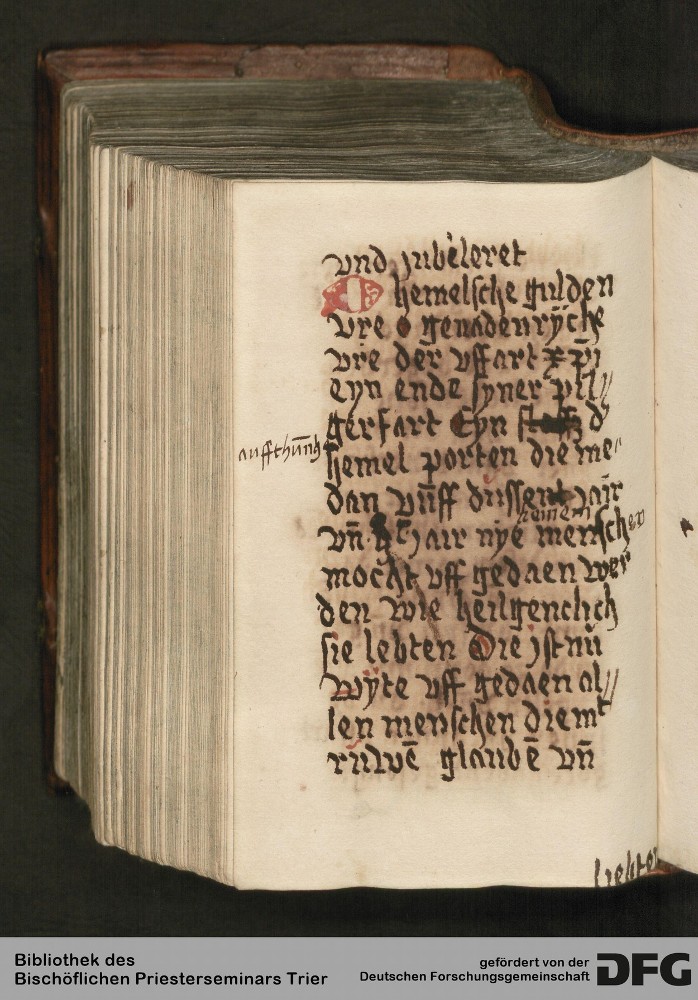 vnd jubeleret
O hemelsche gulden
vre o genadenryche
vre der vffart xpi
eyn ende syner pil//
gerfart Eyn d'
auffthunng
hemel porten die me'
dan vunff dussent jair
vn̄ jair nye menschen
keinem
mocht vff gedaen wer
den wie heilgenclich
sie lebten Die jst nu
wyte vff gedaen al//
len menschen die mt
ruwē glaubē vn̄
liebten
Bibliothek des
Bischöflichen Priesterseminars Trier
gefördert von der
Deutschen Forschungsgemeinschaft DFG